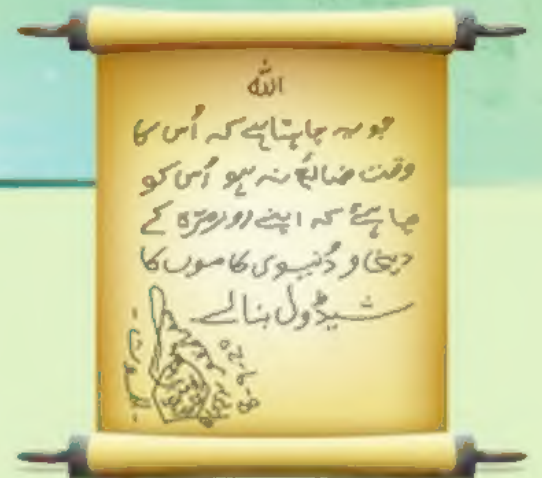 الله
جو یہ چاہتا ہے کہ اُس کا
وقت ضائع نہ ہو اُس کو
چاہئے کہ اپنے روزمرّہ کے
دینی و دُنیوی کاموں کا
شیڈول بنالے